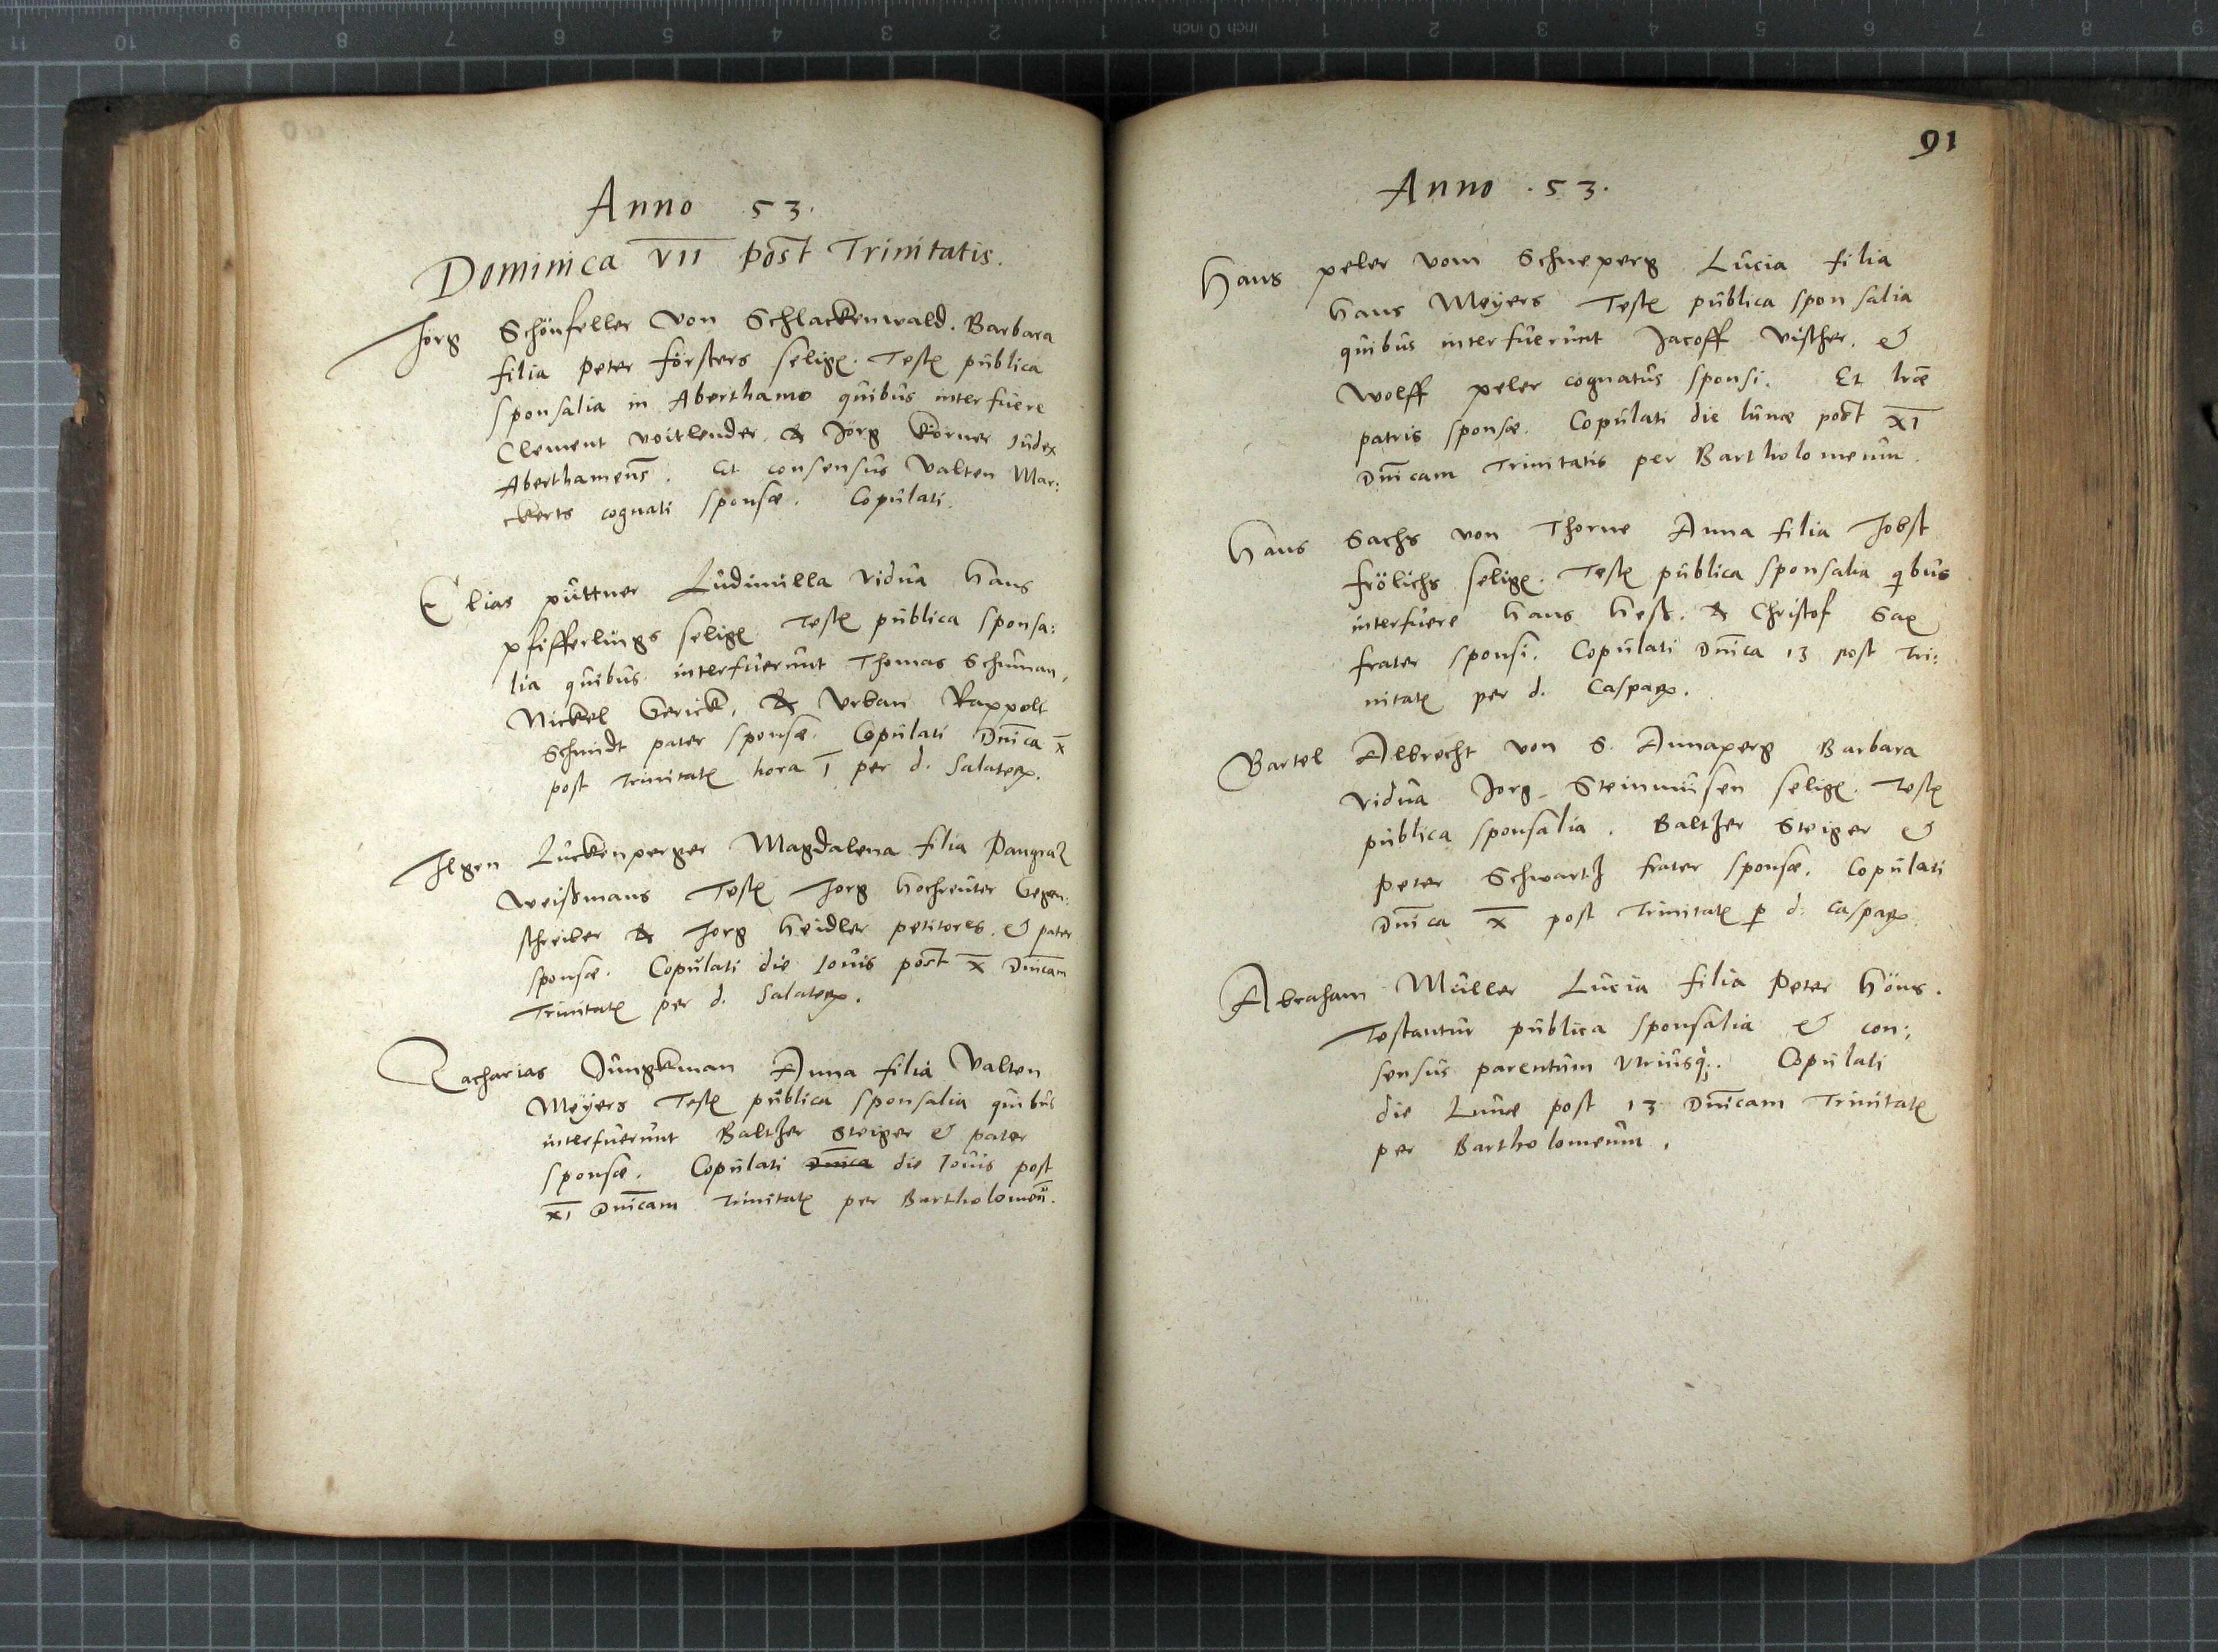 Anno 53.
Dominica VII post Trinitatis.
Jorg Schönfeller von Schlackenwald. Barbara
filia Peter försters selige. Teste publica
sponsalia in Aberthamo quibus interfuere
Clement voitlender, & Jörg Körner Iudex
Aberthamens. Et consensus Valten Mar:
ckerts cognati sponsæ. Copulati.
Elias püttner Ludimilla vidua Hans
pfifferlings selige. Teste publica sponsa:
lia quibus interfuerunt Thomas Schuman,
Nickel Gerick, & Urban Rappolt
Schmidt pater sponsæ. Copulati Dnica x
post Trinitate hora 1 per d. Salater.
Ilgen Luckenperger Magdalena filia Pangratz
Weißmans Teste Jorg hochreuter Gegen:
schreiber & Jorg Heidler petitores & pater
sponsæ. Copulati die Iovis post x Dnicam
Trinitate per d. Salater.
Zacharias Jungkman Anna filia Valten
Meÿers Teste publica sponsalia quibus
interfuerunt Baltzer Steiger & pater
sponsæ. Copulati Dnica die Iovis post
XI Dnicam Trinitate per Bartholomeū.
91
Anno .53.
Hans peler vom Schneperg Lucia filia
Hans Meÿers Teste publica sponsalia
quibus interfuerunt Jacoff vischer, &
Wolff peler cognatus sponsi. Et lræ
patris sponsæ. Copulati die lunæ post XI
Dnicam Trinitatis per Bartholomeum.
Hans Sachs von Thorne Anna filia Jobst
frölichs selige. Teste publica sponsalia qbus
interfuere Hans Heß, & Christof Sax
frater sponsi. Copulati Dnica 13 post Tri:
nitate per d. Caspar.
Bartel Albrecht von S. Annaperg Barbara
vidua Jorg Steinmüsen selige. Teste
publica sponsalia. Baltzer Steiger &
Peter Schwartz frater sponsæ. Copulati
Dnica x post Trinitate p d. Caspar.
Abraham Müller Lucia filia Peter Höns.
Testantur publica sponsalia & con:
sensus parentum utriusq;. Copulati
die Lunæ post 13 Dnicam Trinitate
per Bartholomeum.